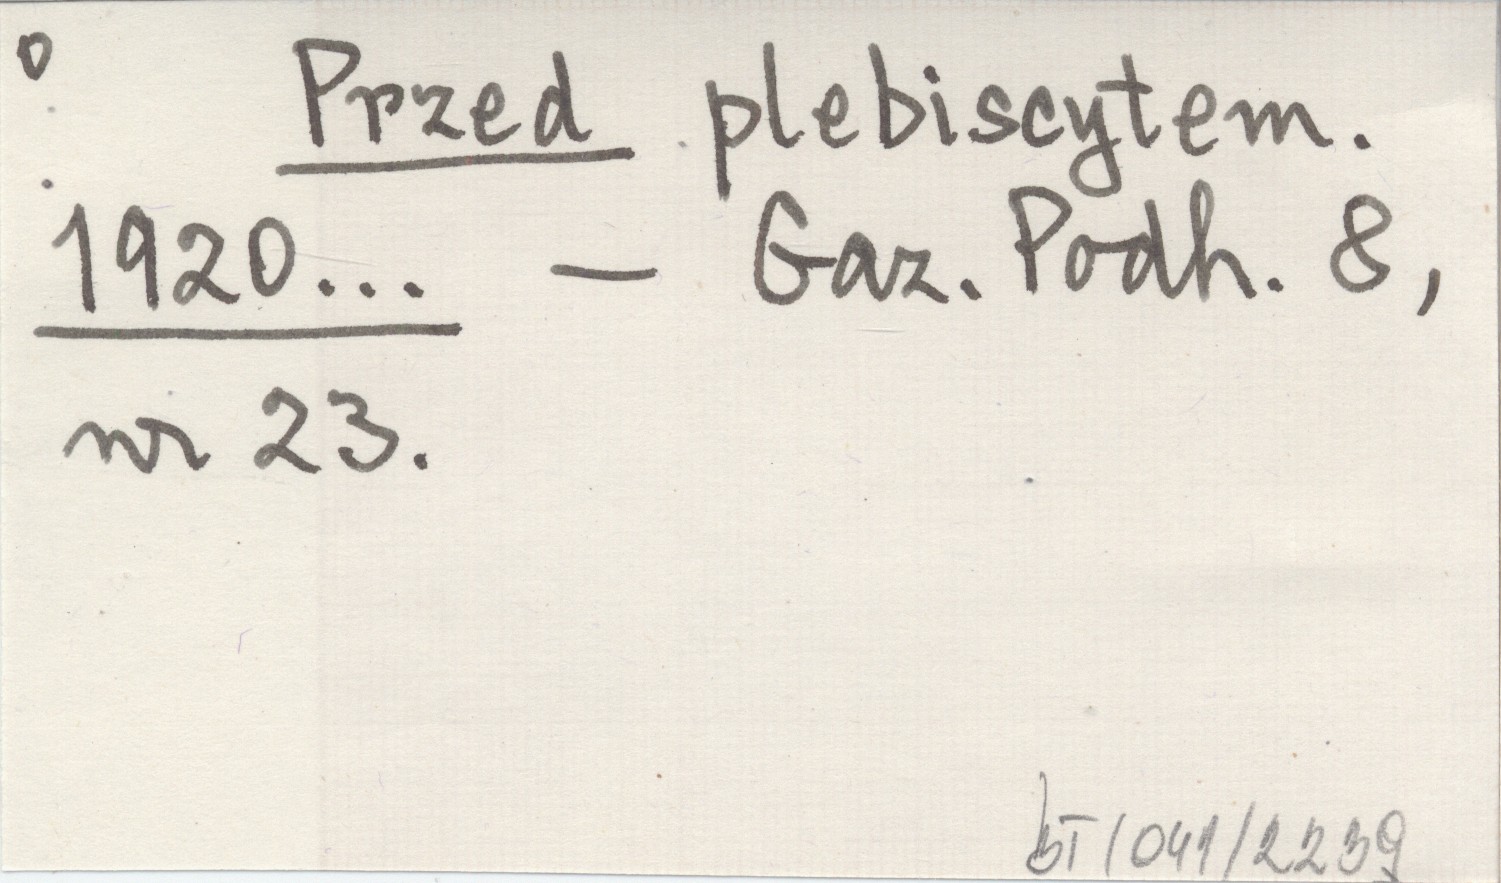 o
Przed plebiscytem.
1920... — Gaz. Podh. 8,
nr 23.
bT/041/2239